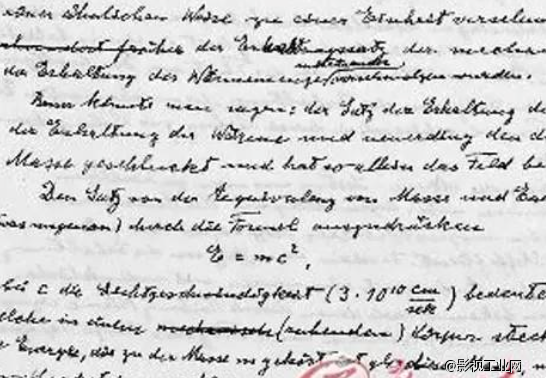 einer ähnlichen Weise zu einer Einheit verschm
der Erhaltungssatz der mechan
miteinander
der Erhaltung der Wärmemenge verschmolzen wurden.
Man könnte nun sagen: der Satz der Erhaltung de
der Erhaltung der Wärme und neuerding den d
Masse geschluckt und hat so allein das Feld be
Den Satz von der Equivalenz von Masse und Ene
ungenau) durch die Formel auszudrücken
E = mc²,
bei c die Lichtgeschwindigkeit (3·10¹⁰ cm/sek) bedeute
welche in einem (ruhenden) Körper steck
Energie, die zu der Masse m gehört, ist gl
@影视工业网